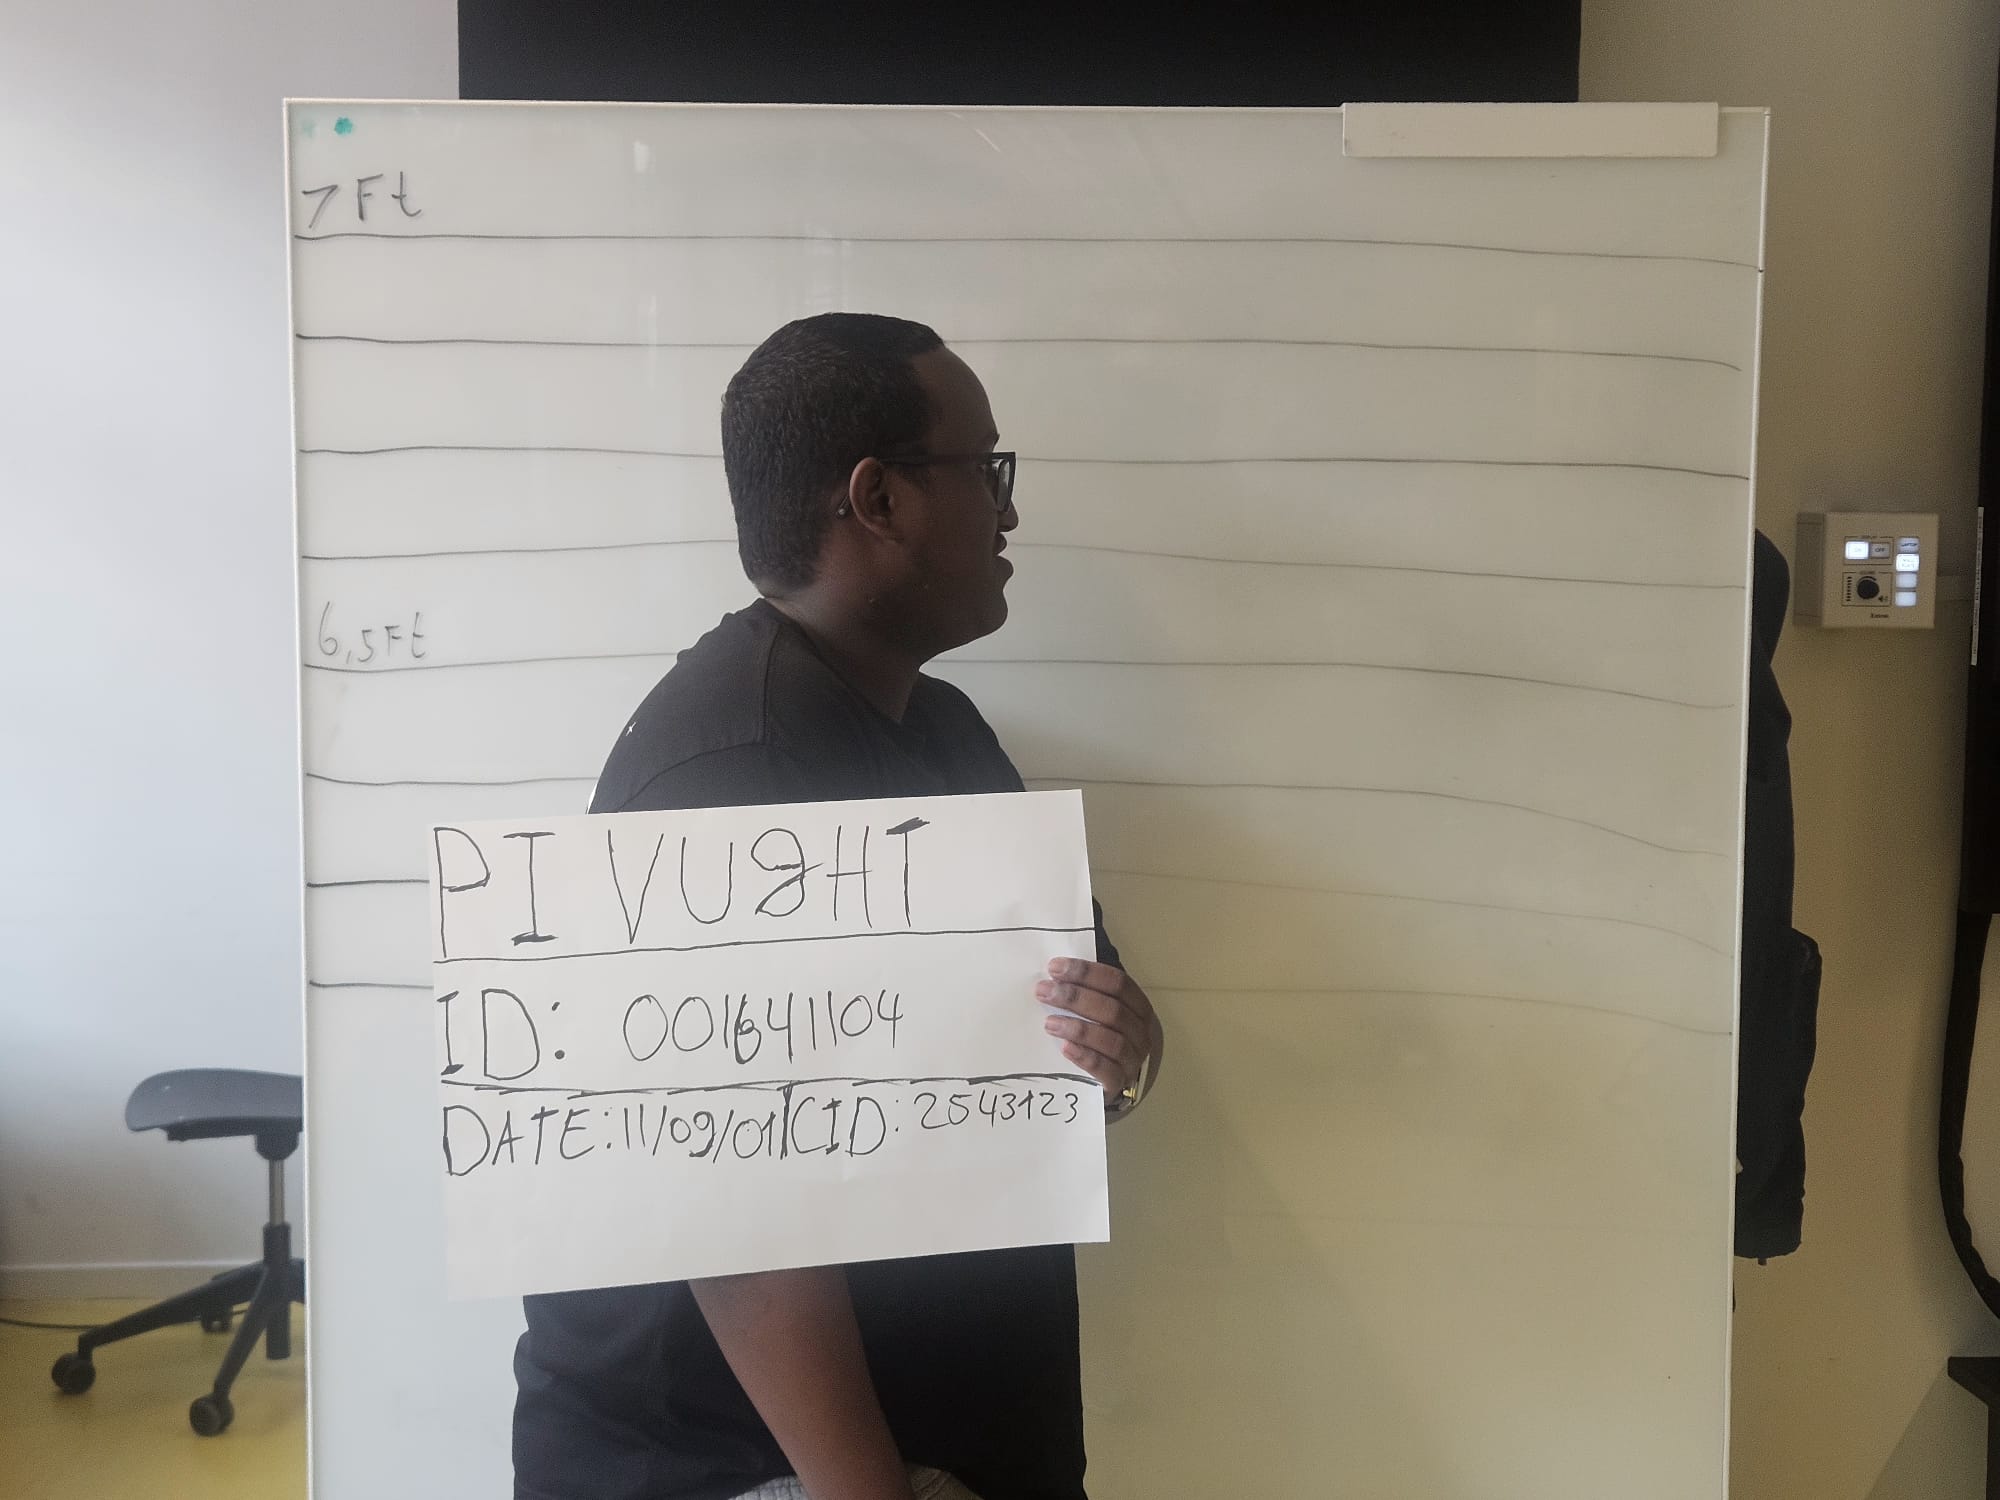 7 Ft
6,5 Ft
PI VUgHT
ID: 001641104
DATE: 11/09/01 CID: 2543123
ON OFF